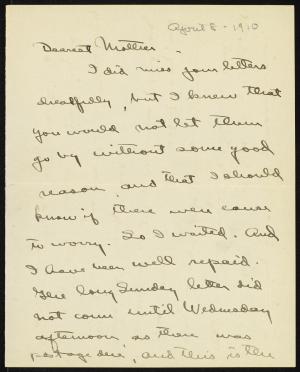 April 8 - 1910
Dearest Mother -
I did miss your letters
dreadfully, but I knew that
you would not let them
go by without some good
reason and that I should
know if there were cause
to worry. So I waited. And
I have been well repaid.
The long Sunday letter did
not come until Wednesday
afternoon as there was
postage due, and this is the